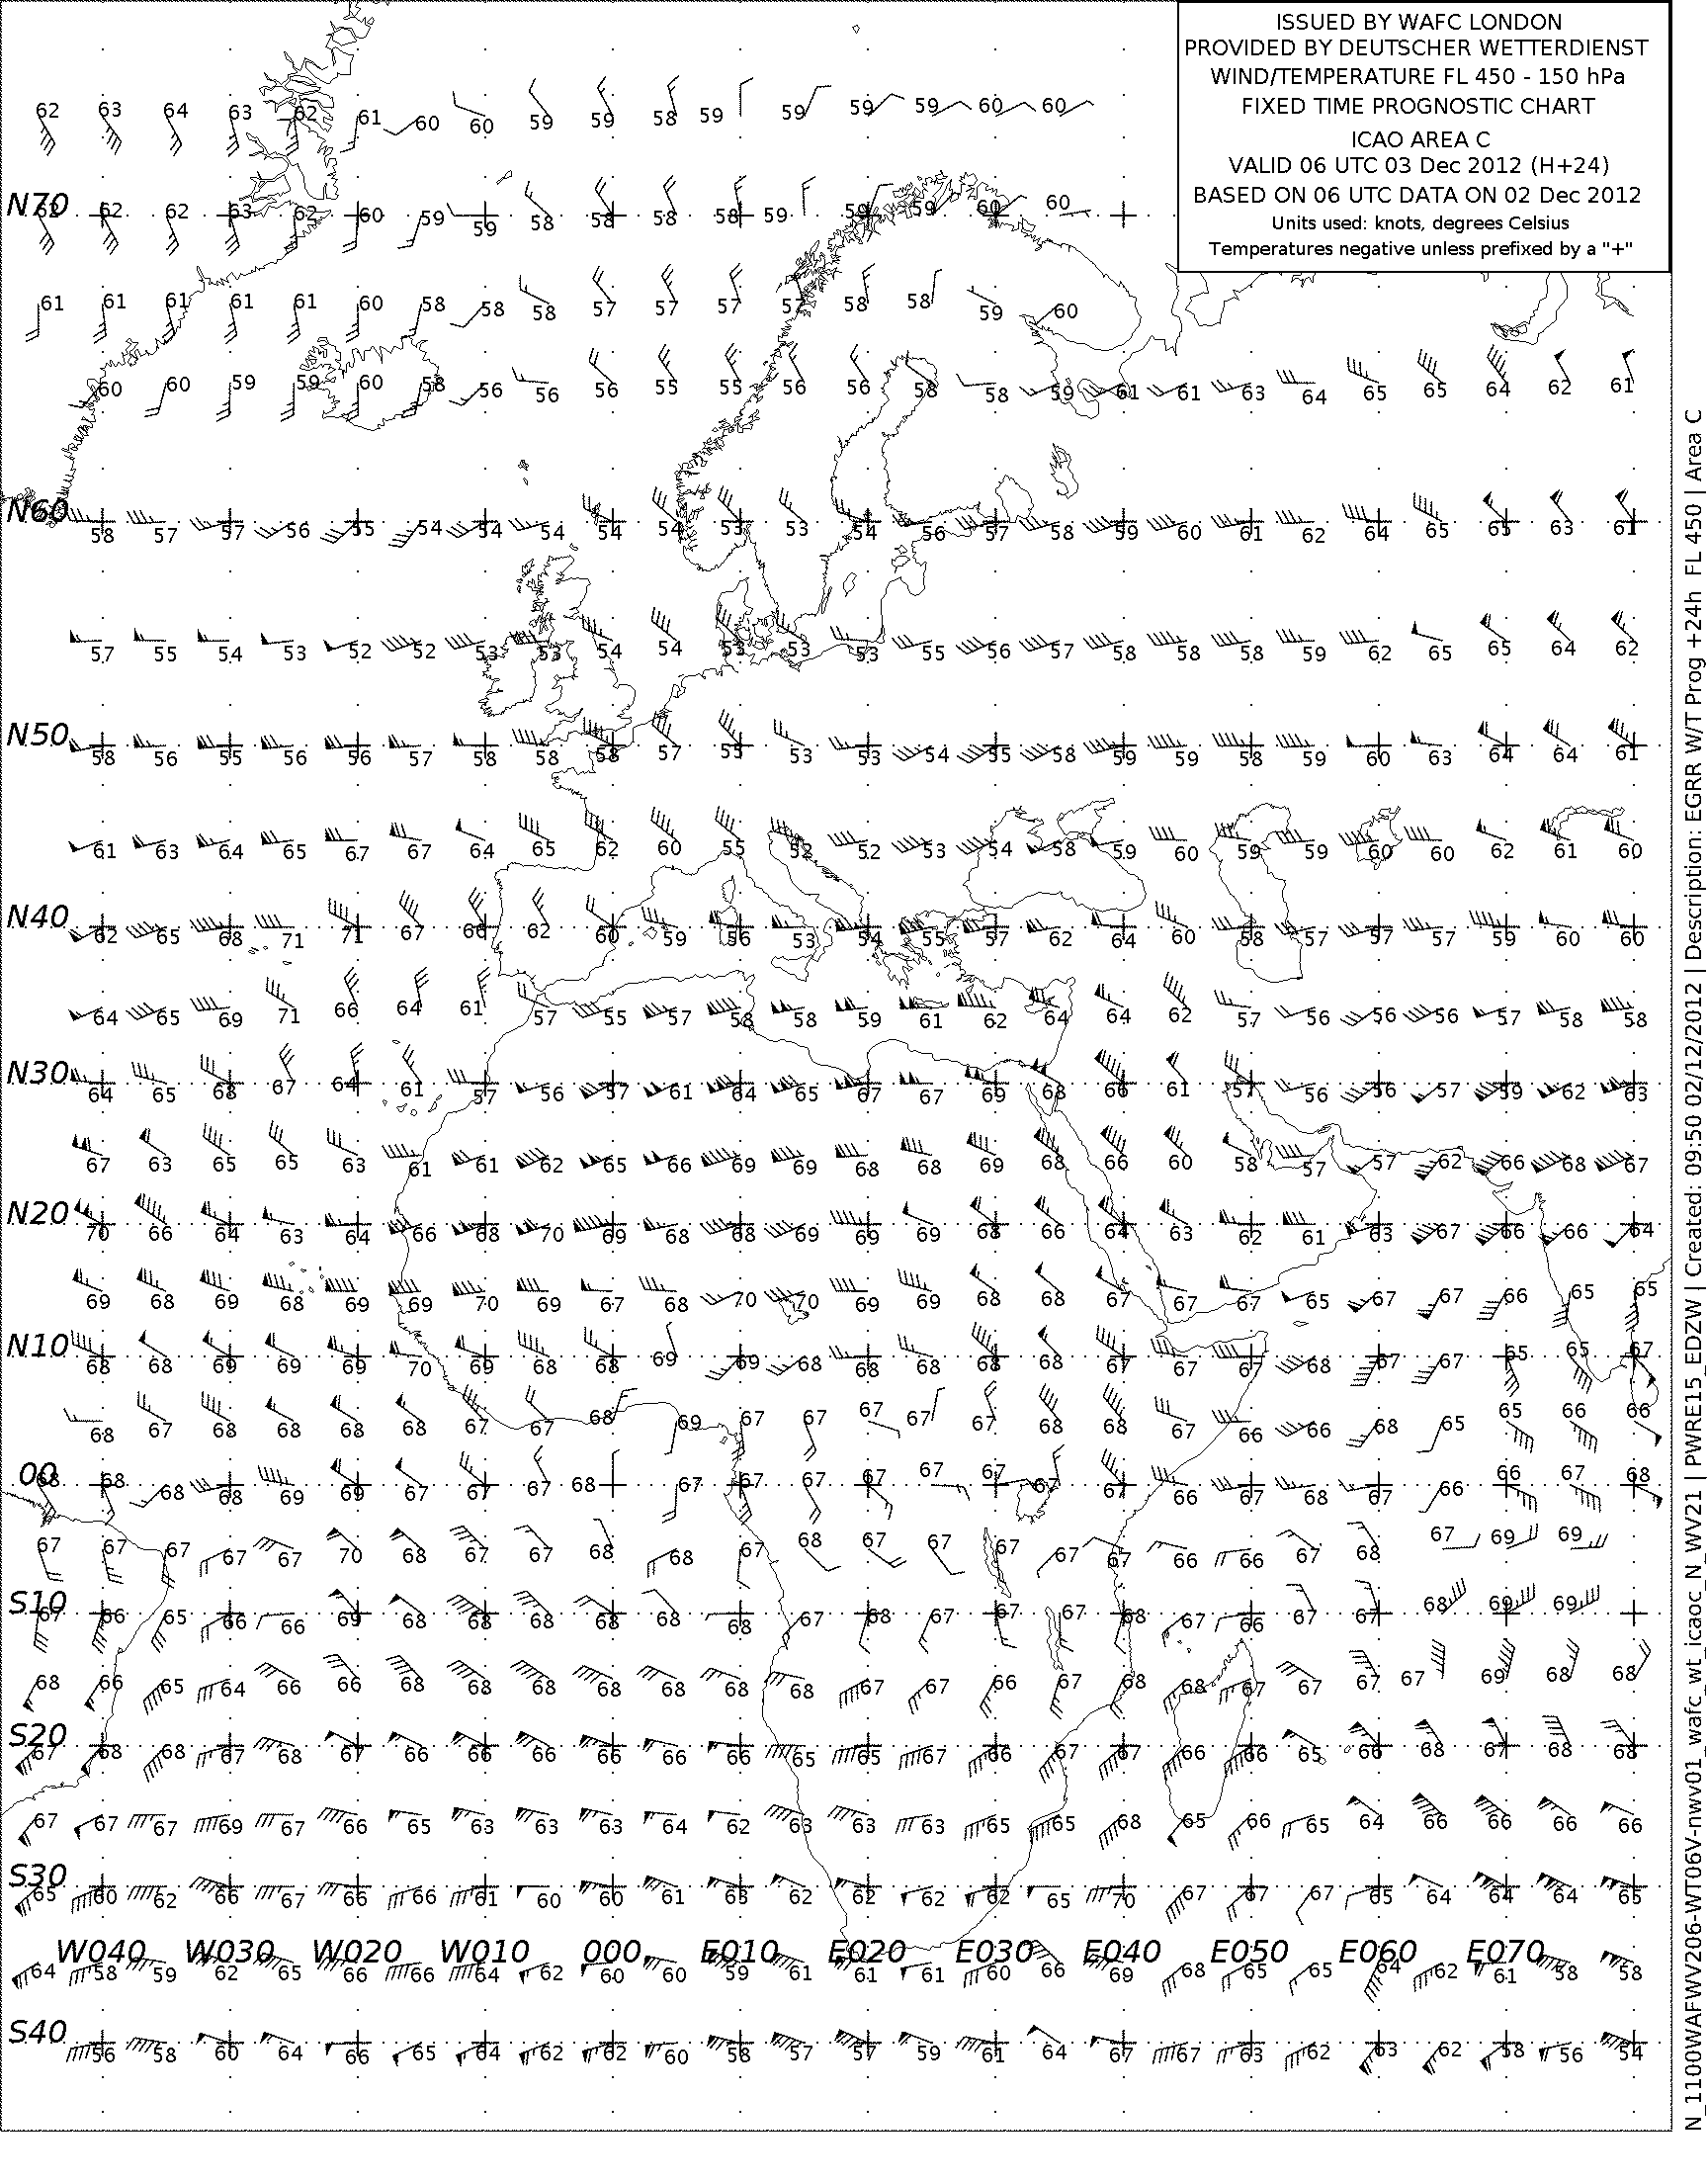 ISSUED BY WAFC LONDON
PROVIDED BY DEUTSCHER WETTERDIENST
WIND/TEMPERATURE FL 450 - 150 hPa
FIXED TIME PROGNOSTIC CHART
ICAO AREA C
VALID 06 UTC 03 Dec 2012 (H+24)
BASED ON 06 UTC DATA ON 02 Dec 2012
Units used: knots, degrees Celsius
Temperatures negative unless prefixed by a "+"
62 63 64 63 62 61 60 60 59 59 58 59 59 59 59 60 60
N70
62 62 62 63 62 60 59 59 58 58 58 58 59 59 59 60 60
61 61 61 61 61 60 58 58 58 57 57 57 57 58 58 59 60
60 60 59 59 60 58 56 56 56 55 55 56 56 58 58 59 61 61 63 64 65 65 64 62 61
N60
58 57 57 56 55 54 54 54 54 54 53 53 54 56 57 58 59 60 61 62 64 65 65 63 61
57 55 54 53 52 52 53 53 54 54 53 53 53 55 56 57 58 58 58 59 62 65 65 64 62
N50
58 56 55 56 56 57 58 58 58 57 55 53 53 54 55 58 59 59 58 59 60 63 64 64 61
61 63 64 65 67 67 64 65 62 60 55 52 52 53 54 58 59 60 59 59 60 60 62 61 60
N40
62 65 68 71 71 67 66 62 60 59 56 53 54 55 57 62 64 60 58 57 57 57 59 60 60
64 65 69 71 66 64 61 57 55 57 58 58 59 61 62 64 64 62 57 56 56 56 57 58 58
N30
64 65 68 67 64 61 57 56 57 61 64 65 67 67 69 68 66 61 57 56 56 57 59 62 63
67 63 65 65 63 61 61 62 65 66 69 69 68 68 69 68 66 60 58 57 57 62 66 68 67
N20
70 66 64 63 64 66 68 70 69 68 68 69 69 69 68 66 64 63 62 61 63 67 66 66 64
69 68 69 68 69 69 70 69 67 68 70 70 69 69 68 68 67 67 67 65 67 67 66 65 65
N10
68 68 69 69 69 70 69 68 68 69 69 68 68 68 68 68 67 67 67 68 67 67 65 65 67
68 67 68 68 68 68 67 67 68 69 67 67 67 67 67 68 68 67 66 66 68 65 65 66 66
00
68 68 68 68 69 69 67 67 67 68 67 67 67 67 67 67 67 67 66 67 68 67 66 66 67 68
67 67 67 67 67 70 68 67 67 68 68 67 68 67 67 67 67 67 66 66 67 68 67 69 69
S10
67 66 65 66 66 69 68 68 68 68 68 68 67 68 67 67 67 68 67 66 67 67 68 69 69
68 66 65 64 66 66 68 68 68 68 68 68 68 67 67 66 67 68 68 67 67 67 67 69 68 68
S20
67 68 68 67 68 67 66 66 66 66 66 66 65 65 67 66 67 67 66 66 65 66 68 67 68 68
67 67 67 69 67 66 65 63 63 63 64 62 63 63 63 65 65 68 65 66 65 64 66 66 66 66
S30
65 60 62 66 67 66 66 61 60 60 61 63 62 62 62 62 65 70 67 67 67 65 64 64 64 65
W040 W030 W020 W010 000 E010 E020 E030 E040 E050 E060 E070
64 58 59 62 65 66 66 64 62 60 60 59 61 61 61 60 66 69 68 65 65 64 62 61 58 58
S40
56 58 60 64 66 65 64 62 62 60 58 57 57 59 61 64 67 67 63 62 63 62 58 56 54
N_1100WAFWV206-WT06V-nwv01_wafc_wt_icaoc_N_WV21 | PWRE15_EDZW | Created: 09:50 02/12/2012 | Description: EGRR W/T Prog +24h FL 450 | Area C